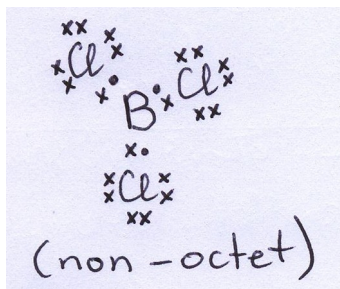 Cl Cl
B
Cl
(non-octet)